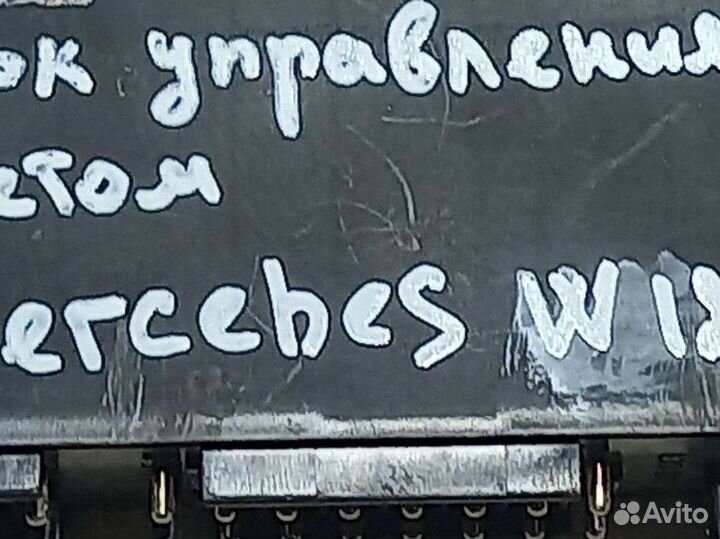 ок управлениям
етом
ercehes W 18
Avito